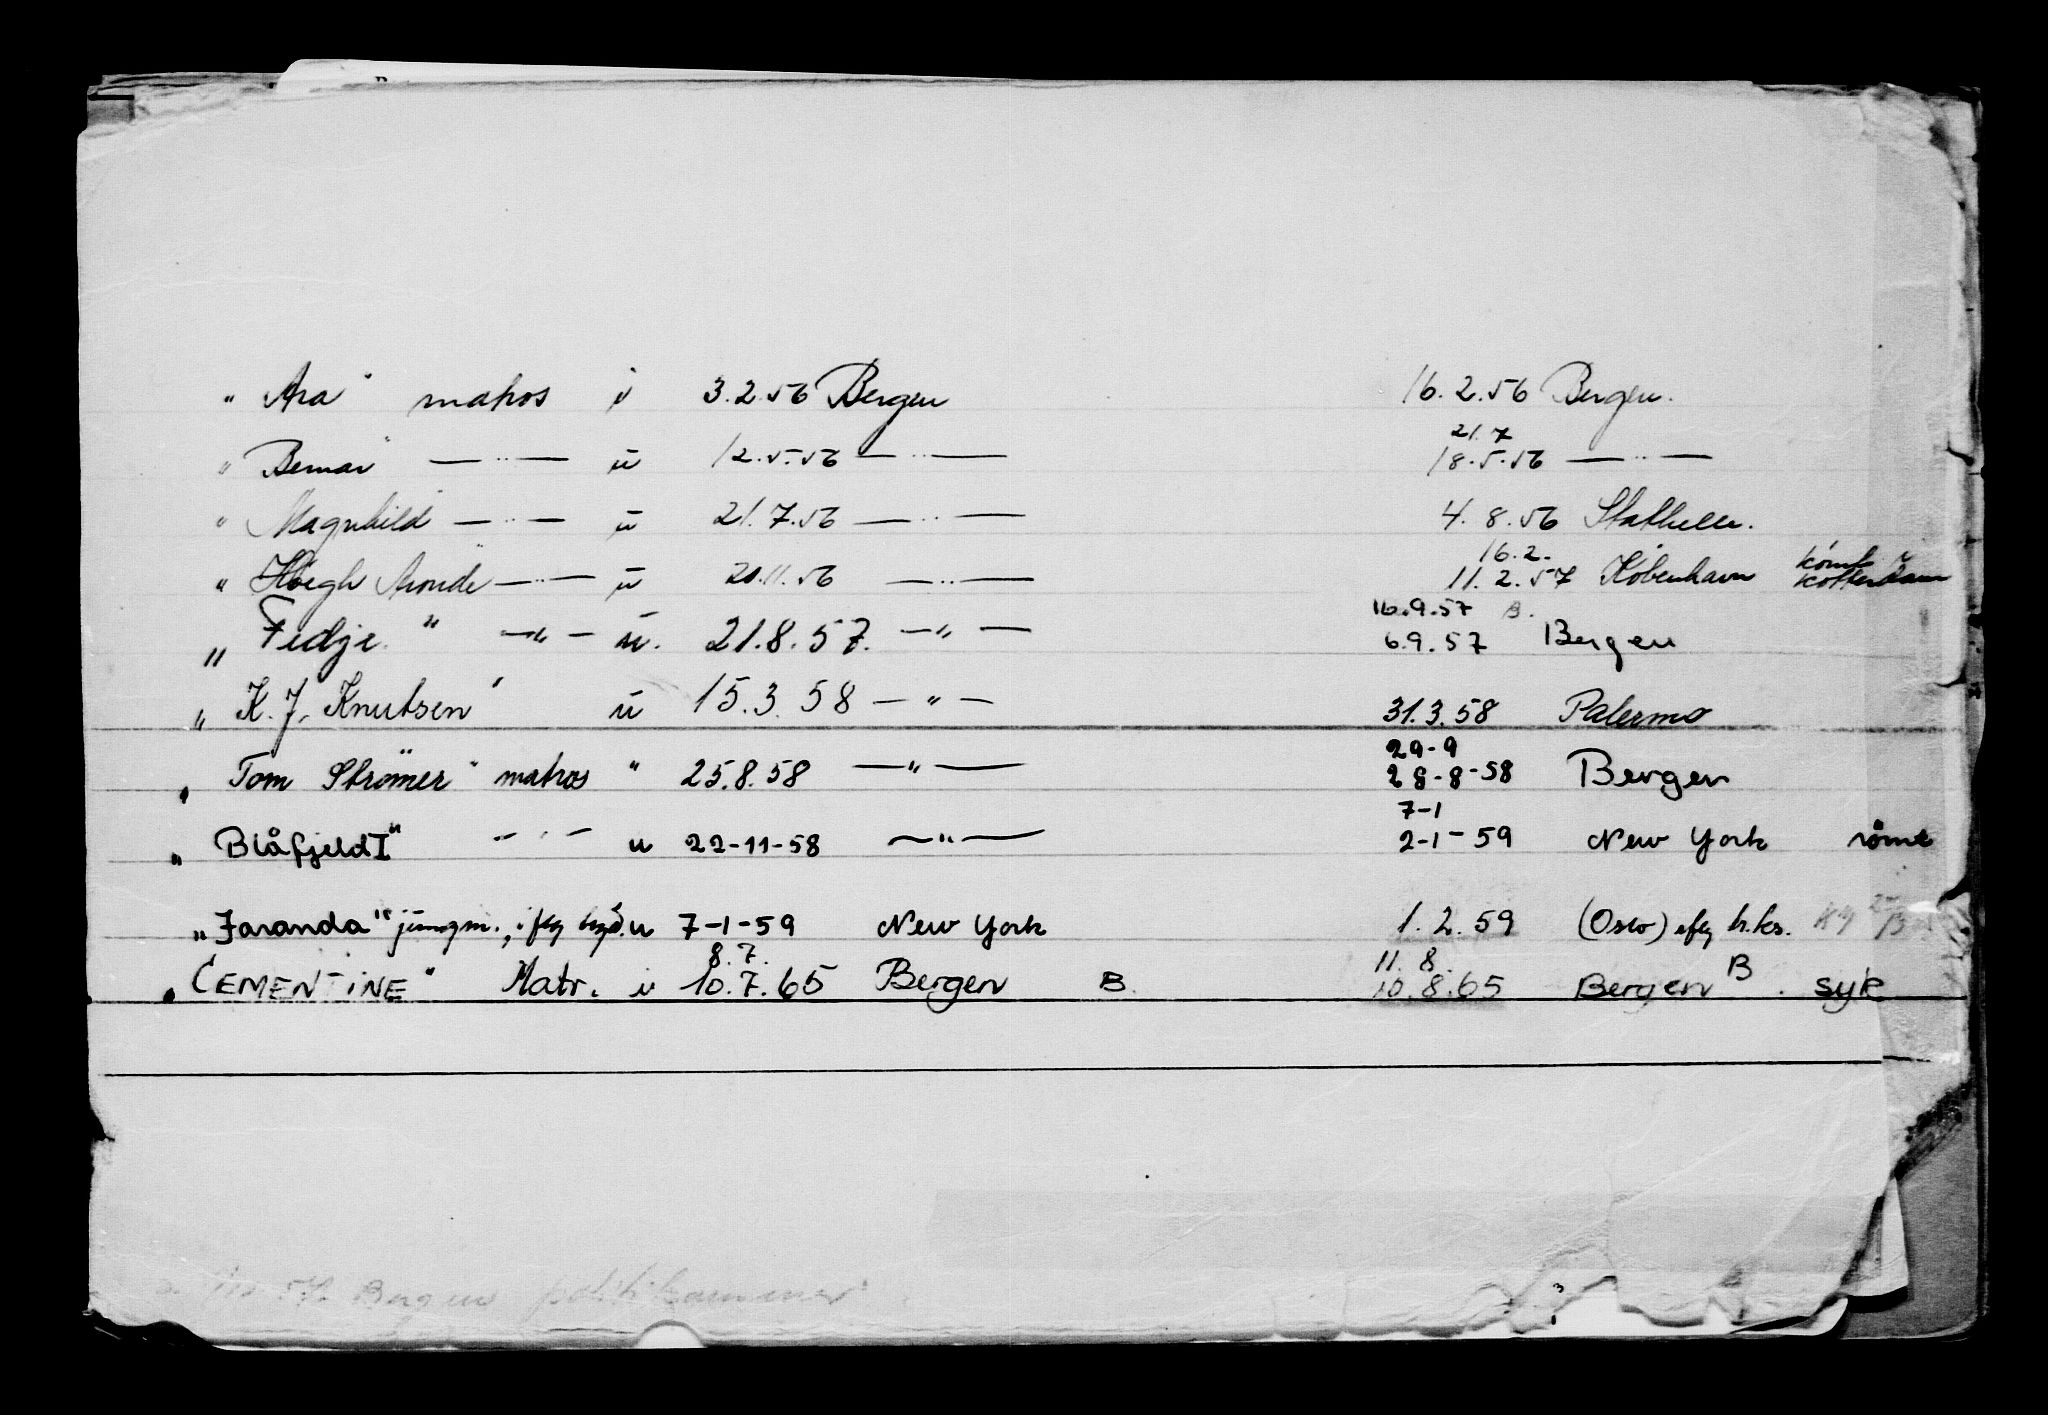 „ Ara" matros u 3.2.56 Bergen 16.2.56 Bergen.
21.7
„ Bemar" —"— u 12.5.56 —"— 18.5.56 —"—
„ Magnhild —"— u 21.7.56 —"— 4.8.56 Stathelle.
16.2.
„ Höegh —"— u 20.11.56 —"— 11.2.57 København rømt
16.9.57 B.
„ Fedje." —"— u. 21.8.57. —"— 6.9.57 Bergen
„ K.J. Knutsen" u 15.3.58 —"— 31.3.58 Palermo
29-9
„ Tom Strömer" matros " 25.8.58 —"— 28-8-58 Bergen
7-1
„ Blåfjeld I" —"— u 22-11-58 —"— 2-1-59 New York rømt
„Jaranda" jungm., u 7-1-59 New York 1.2.59 (Oslo)
8.7. 11.8. B
„ CEMENTINE" Matr. u 10.7.65 Bergen B. 10.8.65 Bergen. syk
Bergen politikammer